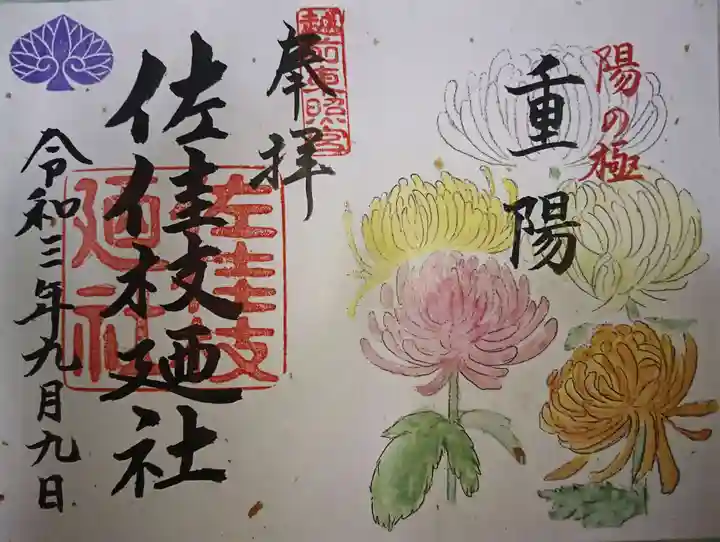 陽の極
重陽
越前東照宮
奉拝
佐佳枝廼社
佐佳枝廼社
令和三年九月九日